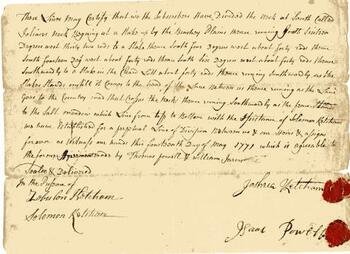 These Lines may Certify that we the Subscribers Have Devided the neck at South Called
Begining at a Stake up by the Plains thence runing South
Degrees west thirty two rods to a Stake thence South four Degrees west about forty rods thence
South fourteen Deg west about forty rods thence South five Degres west about forty rods thence
Southwardly to a Stake in the about forty rods thence runing Southwardly as the
Stakes Stands untill it Comes to the road of the
Gore to the Country road that the neck thence runing Southwardly as the fence
to the Salt meadow which Line from to Bottom with the Assistance of Solomon Ketcham
we have Established for a perpetual Line of Division Between us & our Heirs & assigns
forever as Witness our hands this fourteenth Day of May 1771 which is agreeable to
the former made by Thomas Powell & William
Sealed & Delivered
In the Presence of
Zebulon Ketcham
Solomon Ketcham
Joshua Ketcham
Isaac Powell